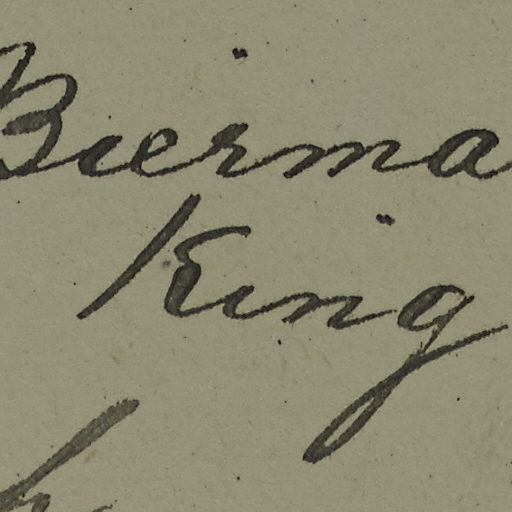 Bierma
King